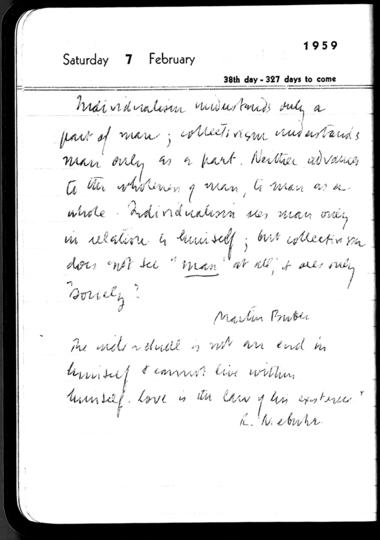 1959
Saturday 7 February
38th day - 327 days to come
Individualism understands only a
part of man; collectivism understands
man only as a part. Neither advances
to the wholeness of man, to man as a
whole. Individualism sees man only
in relation to himself; but collectivism
does not see "man" at all, it sees only
"society".
Martin Buber
The individual is not an end in
himself & cannot live within
himself. Love is the law of his existence"
R. Niebuhr